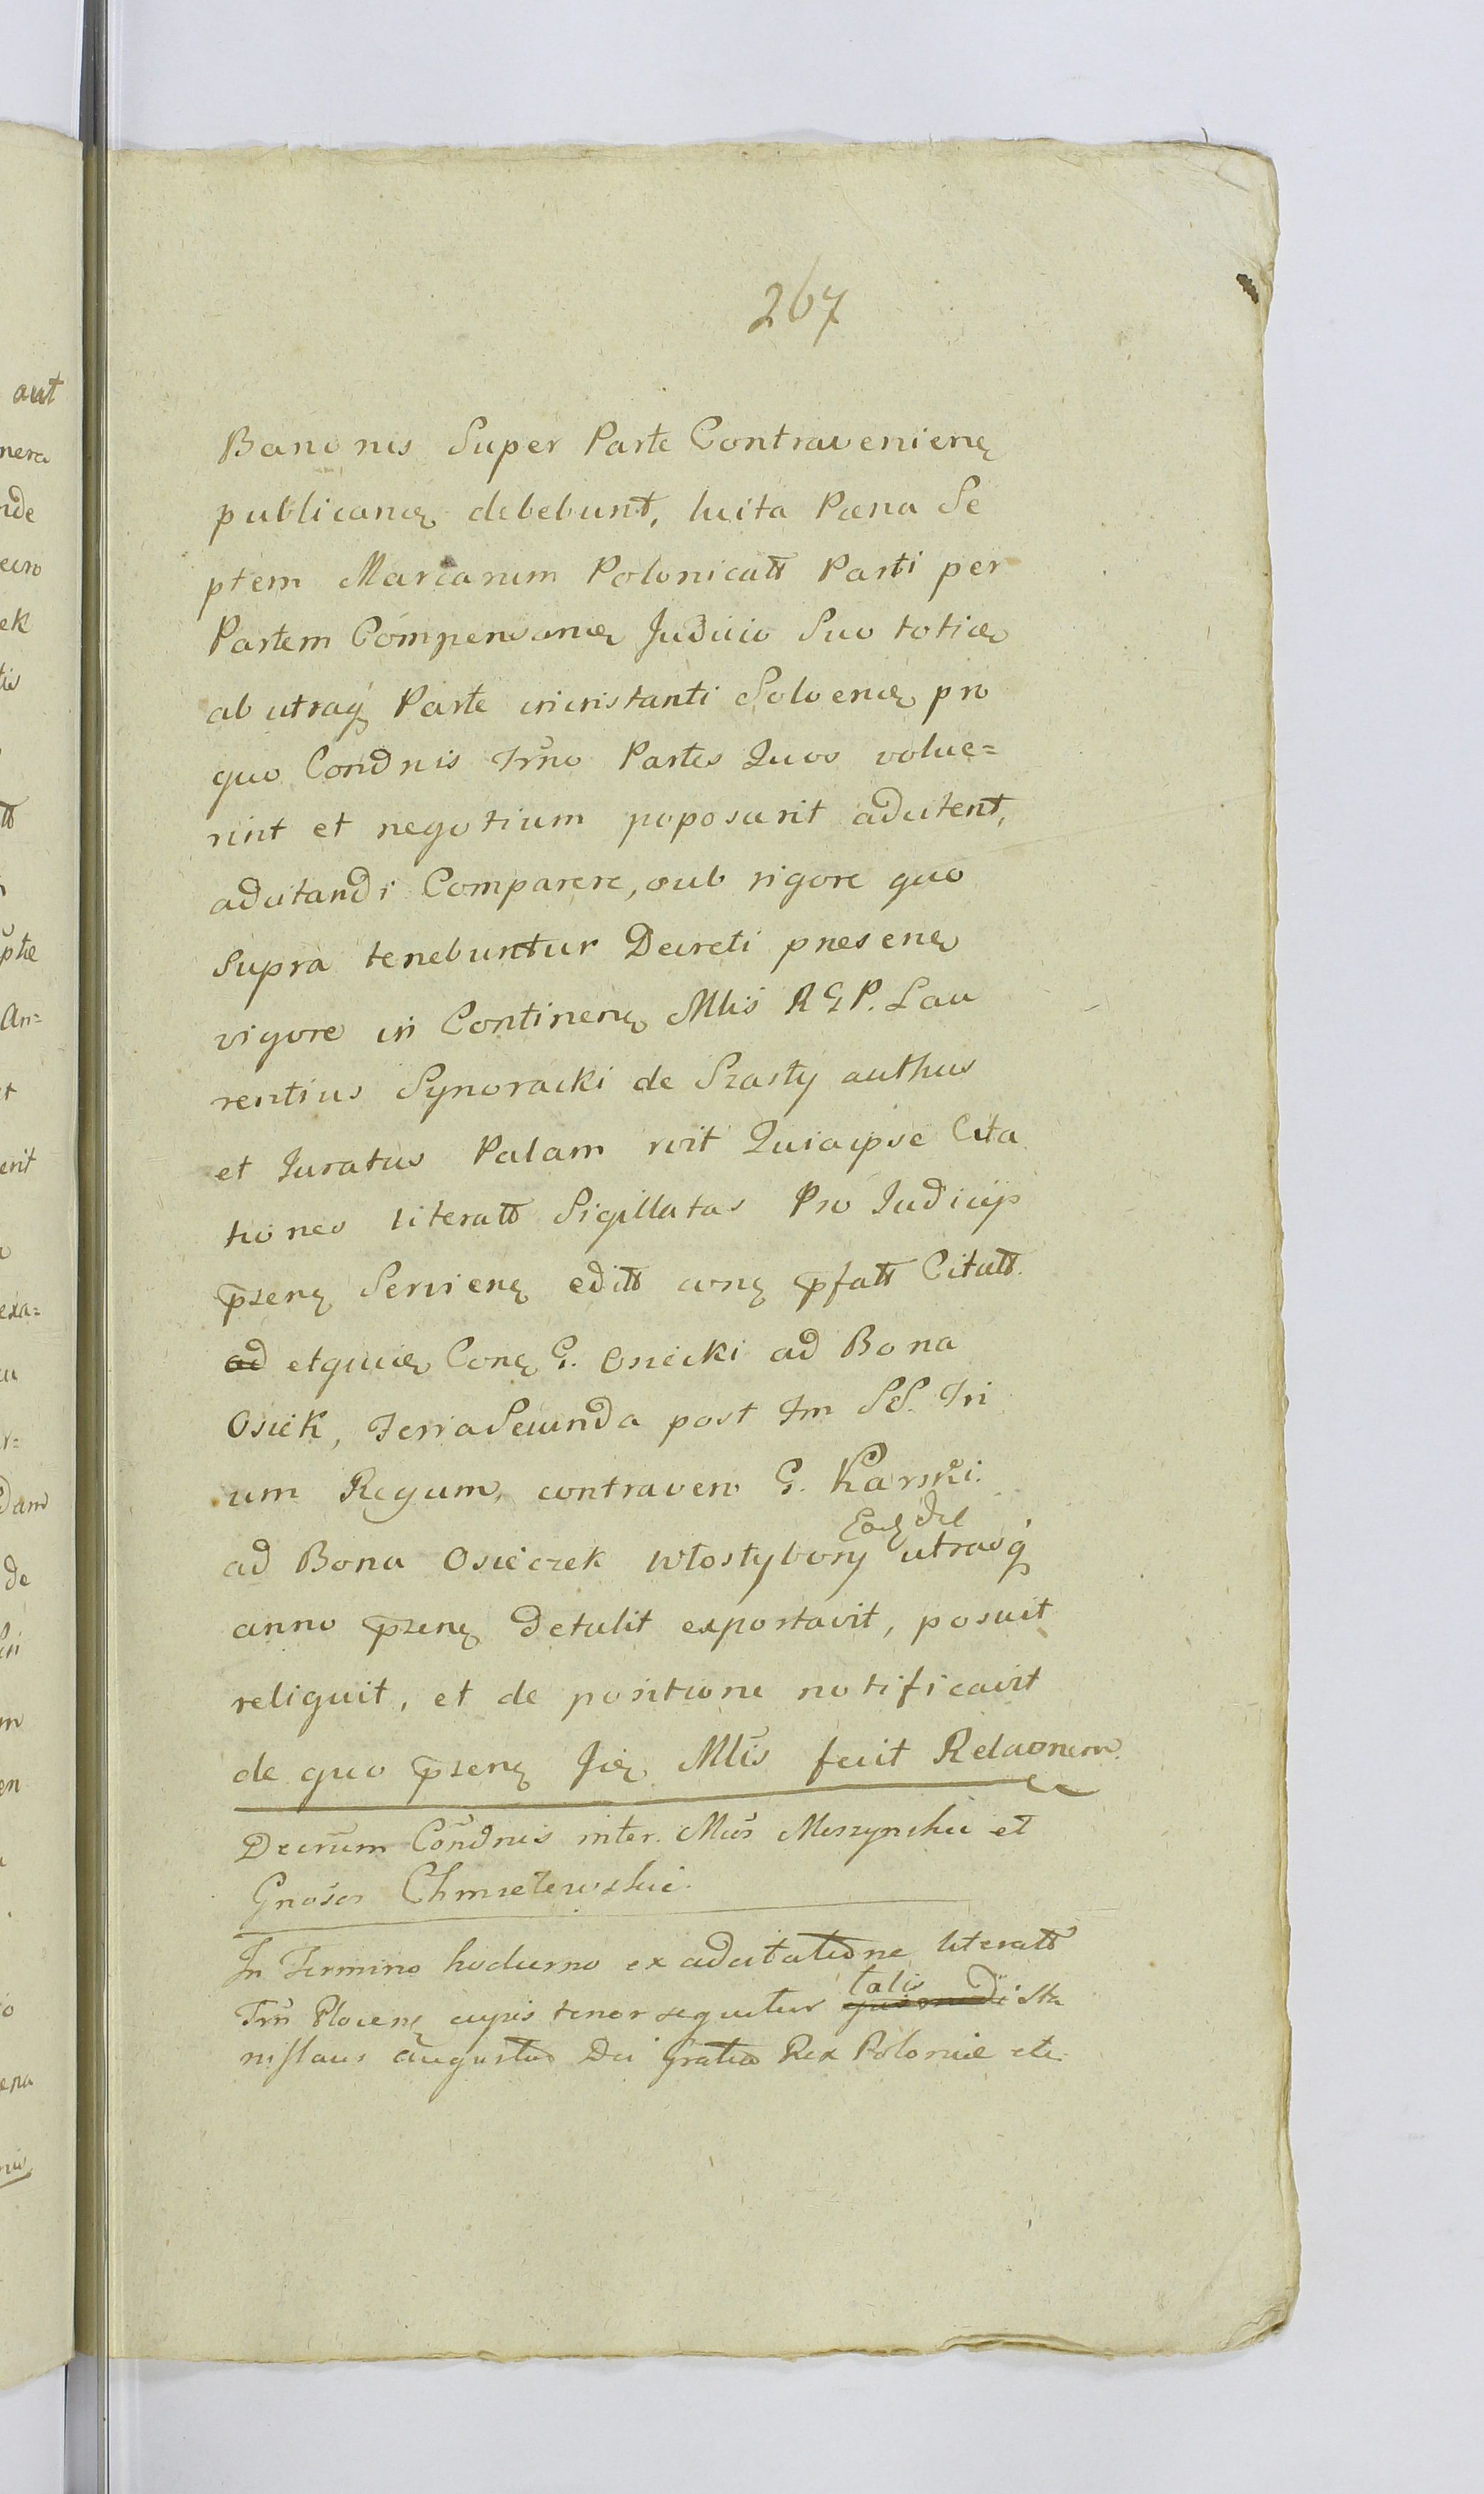 267
Banonis Super Parte Contravenienę
publicanę debebunt, luita Pæna Se
ptem Marcarum Polonicatt Parti per
Partem Compensanę Judicio Suo totię
ab utraq Parte in instanti Solvenę pro
quo Condnis Trno Partes Quos volue=
rint et negotium poposcerit adcitent,
adcitandi Comparere, sub rigore quo
Supra tenebuntur Decreti præsenę
vigore in Continenę Mlis RGP. Lau
rentius Synoracki de Szasty authus
et Juratus Palam rvit Quia ipse Cita
tiones literatt Sigillatas Pro Judicijs
pzenę Servienę editt conę pfatt Citatt.
ad etquię Conę G. Osiecki ad Bona
Osiek, Feria Secunda post Fm SS. Tri
um Regum, contraven G. Karski.
Eoę die
ad Bona Osieczek Włostybory utrasq
anno pzenę detulit exportavit, posuit
reliquit, et de positione notificavit
de quo pzenę Jię Mlis fecit Relaonem.
Decrum Condnis inter. Mcos Meszynskie et
Gnosos Chmielewskie.
In Termino hodierno ex adcitatione literatt
talis
Trn Plocenę cujus tenor sequitur Sta
nislaus augustus Dei gratia Rex Poloniæ etc.
aut
nera
nde
ek
An=
exa=
dam
de